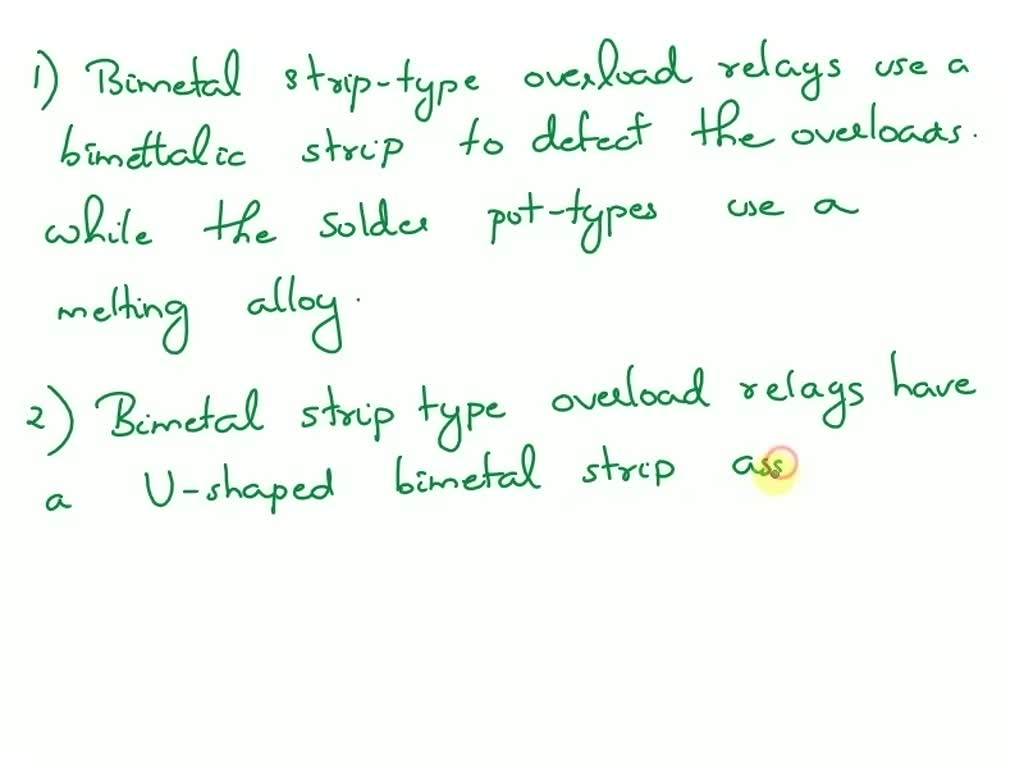 1) Bimetal strip-type overload relays use a
bimettalic strip to detect the overloads.
while the solder pot-types use a
melting alloy.
2) Bimetal strip type overload relays have
a U-shaped bimetal strip ass